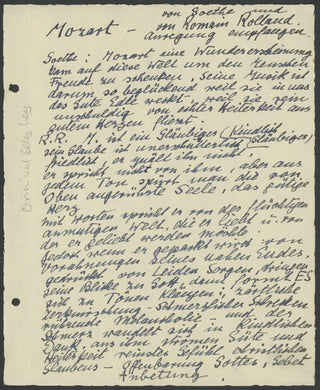 von Goethe und
Mozart – von Romain Rolland.
Anregung empfangen
Goethe: Mozart eine Wundererscheinung
kam auf diese Welt um den Menschen
Freude zu schenken, Seine Musik ist
darum, so beglückend weil sie in uns
das Gute Edle weckt; weil sie rein
unschuldig von echter Heiterkeit aus
gutem Herzen fliesst.
R. R. M. ist ein Gläubiger (Kindlich
sein Glaube ist unerschütterlich Gläubiger)
friedlich, er quält ihn nicht,
er spricht nicht von ihm, aber aus
jedem Ton spürt man die von
Oben angerührte Seele, das gütige
Herz.
Mit Worten spricht er von der flüchtigen
anmutigen Welt, die er liebt u. von
der er geliebt werden möchte.
Jedoch, wenn er gepackt wird von
Vorahnungen seines nahen Endes,
gedrückt von Leiden Sorgen, dringen
seine Blicke zu Gott, dann formt ES
sich zu Tönen Klängen; zärtliche
Zerknirschung, Schmerzlicher Schrecken
rührende Melancholie und der
Schmerz wandelt sich in Kindlichen
Dank, aus ihm strömen Güte und
Heiterkeit reinstes Gefühl christlichen
Glaubens – Offenbarung Gottes, Gebet
Anbetung
Original bei